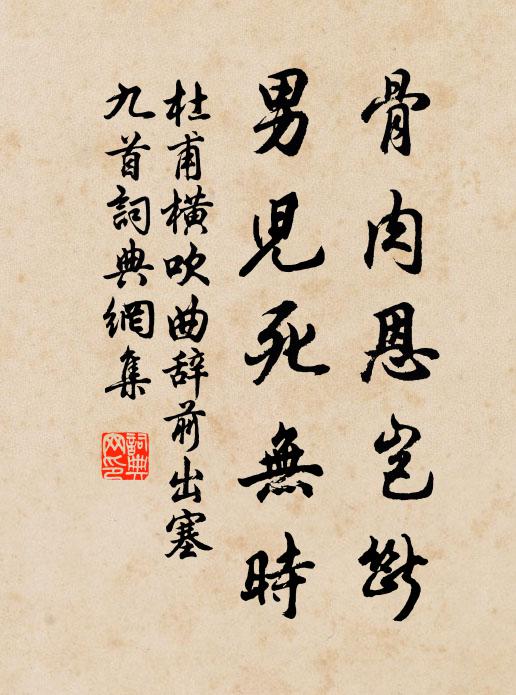 骨肉恩豈斷
男兒死無時
杜甫橫吹曲辞前出塞
九首詞典網集
詞典网印